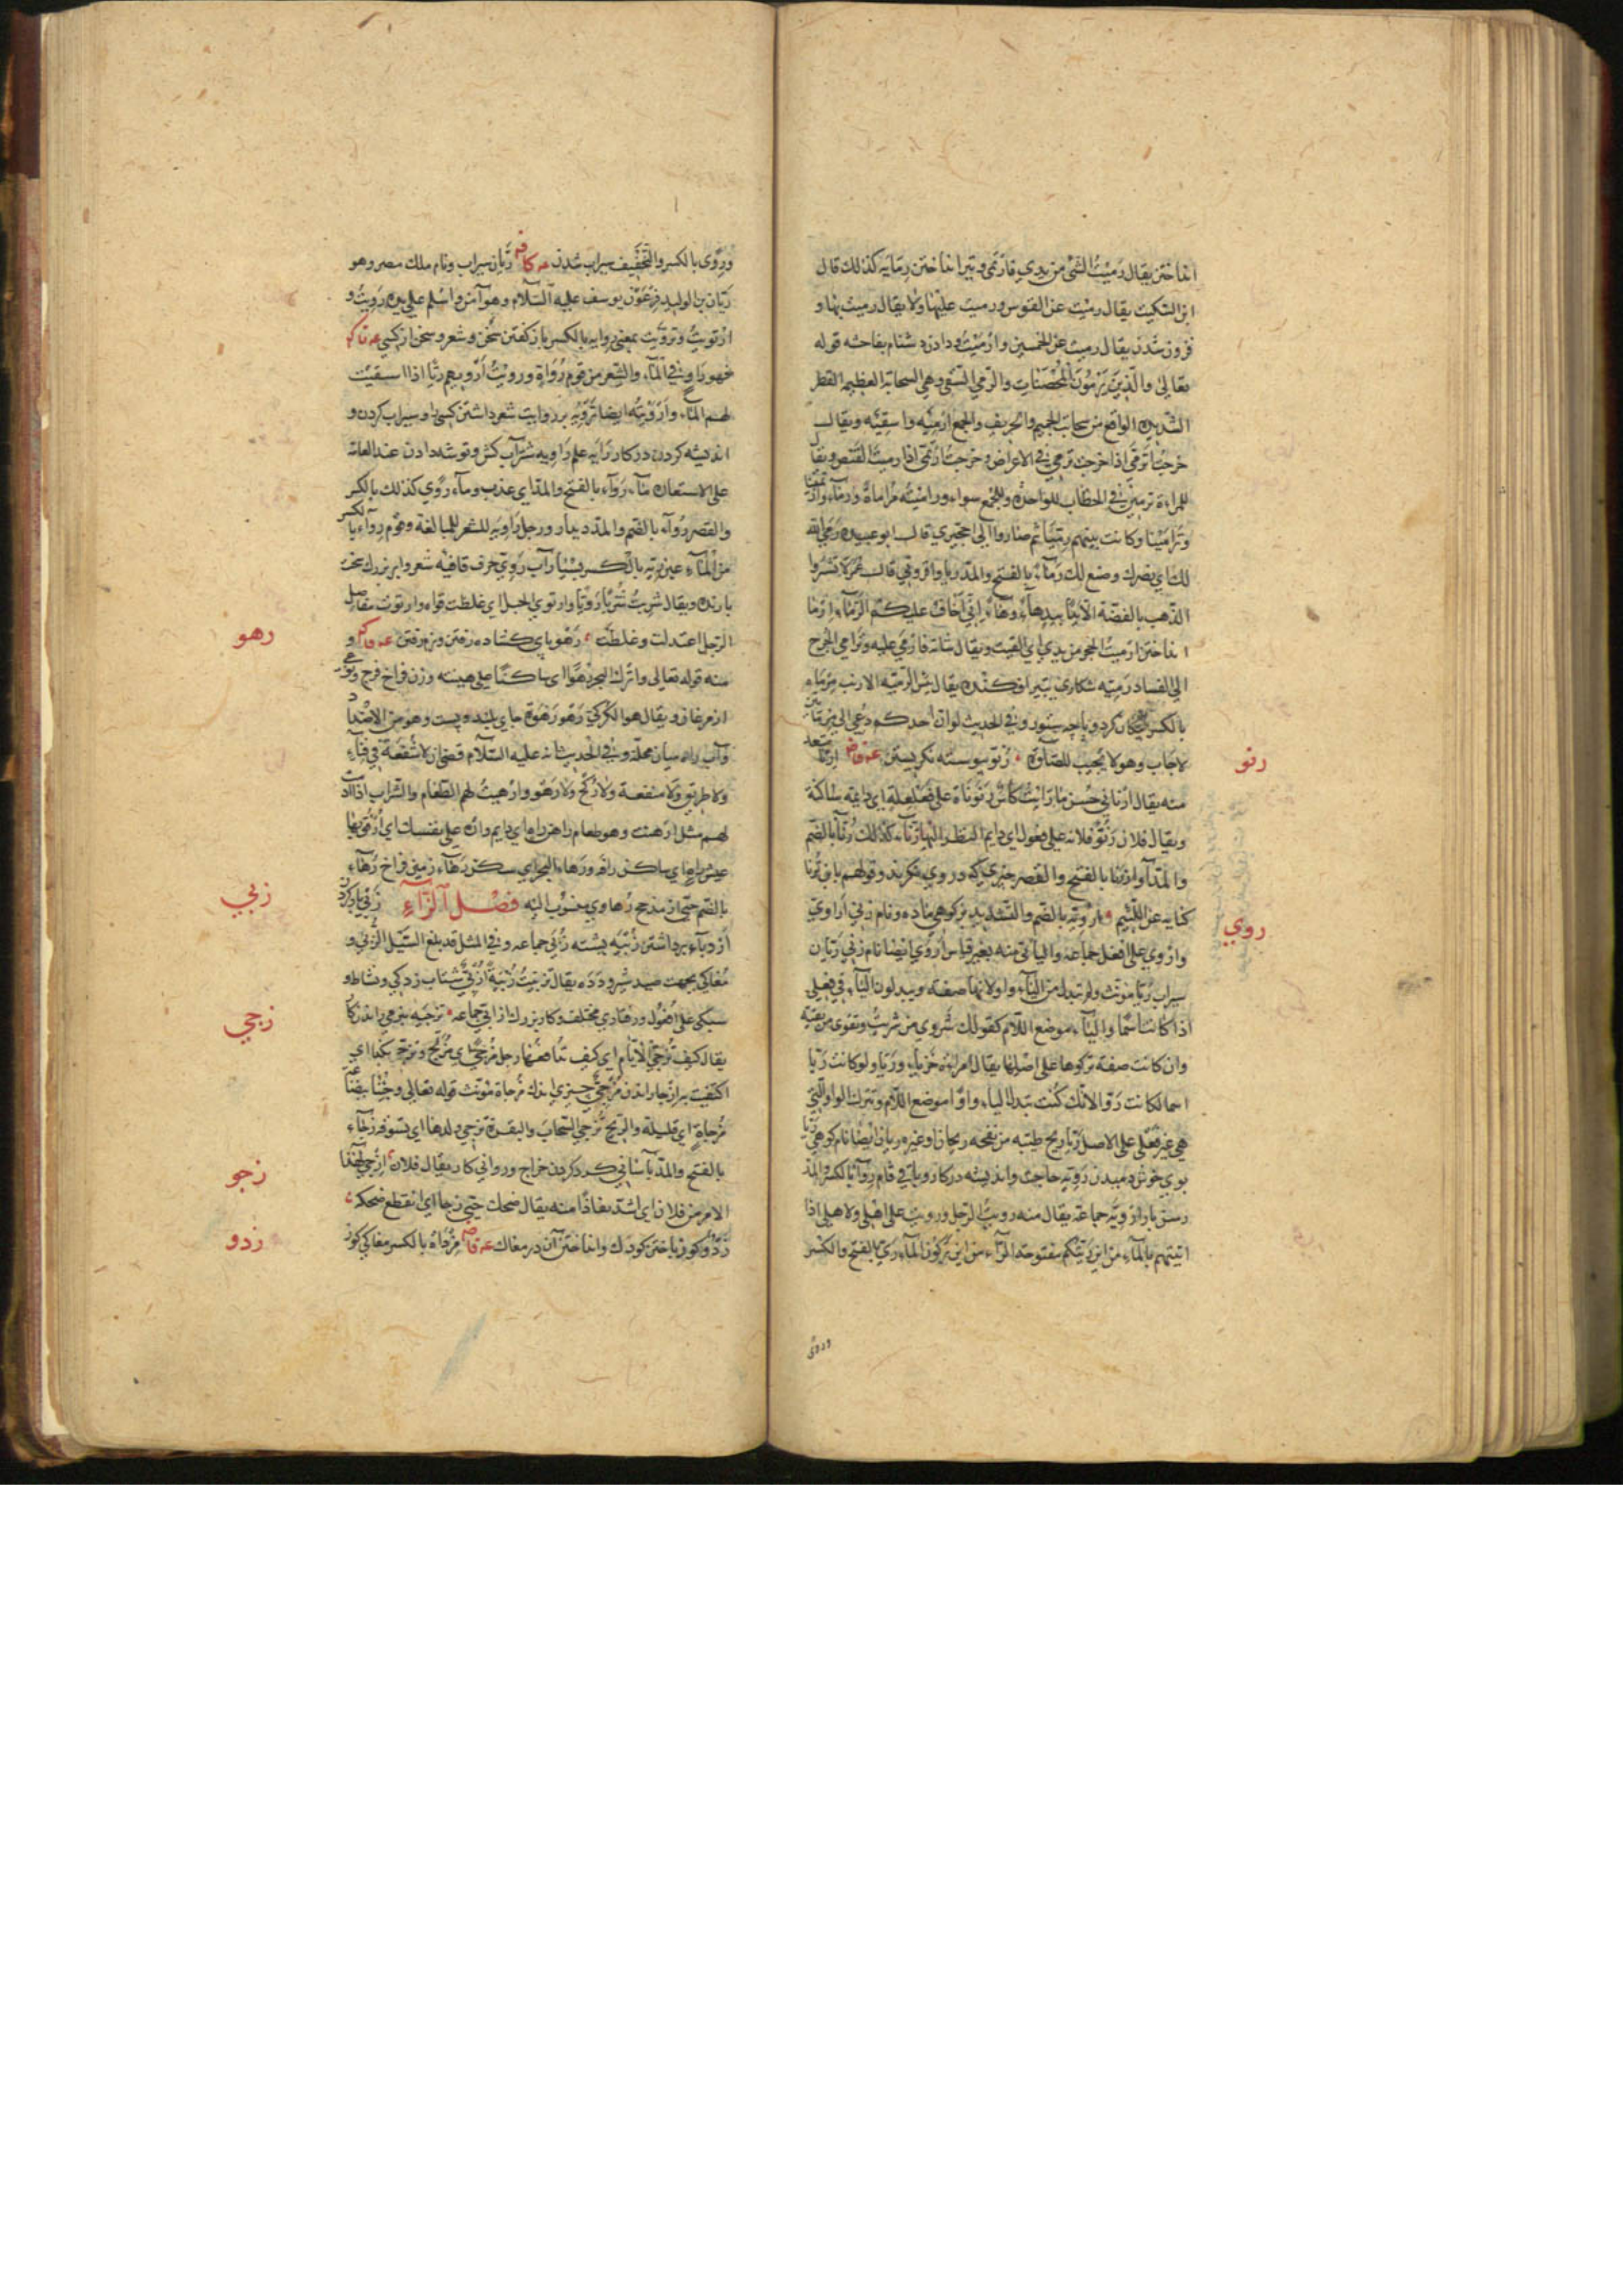 انداختن يقال رَمَيْتُ الشئ من يدي فارتمى و تيرانداختن رِمَايه كذلك قال
ابن السكيت يقال رميت عن القوس ورميت عليها ولا يقال رميت بها و
فزون شدن يقال رميت على الخمسين وارميت و دادن دشنام بفاحشه قوله
تعالى والذين يَرْمُونَ المُحْصَنَاتِ والرمي السقي وهي السحابة العظيمة القطر
الشديدة الواقع من سحاب الحميم والخريف والجمع ارميه واسقيه ويقال
خرجت اَتَرَمَّى اذا خرجت ترمي في الاغراض وخرجت ارتمي اذا رميت القنص ويقال
للمراءة ترمين في الخطاب للواحدة والجمع سواء وراميته مُراماةً ورِمَاءً وارتمينا
وتَرَامَيْنا وكانت بينهم رِمِّيَّا ثم صاروا الى حِجِّيزي قال ابو عبيده رمى الله
لك اي نصرك وصنع لك رَمَاءٌ بالفتح والمد ربا وافزوني قال عمر لا تشتروا
الذهب بالفضة الا يدا بيد هاءَ وهاءَ اني اخاف عليكم الرَّمَاءَ ارما
انداختن ارميت الحجر من يدي اي القيت ويقال شاتمه فارمى عليه وترامى الجرح
الى الفساد رَمِيّه شكاري بتير افكنده يقال بئس الرمية الارنب مِرمَاه
بالكسر پيكان گرد و پاچه ستور وفي الحديث لو ان احدكم دعي الى مرماتين
لاجاب وهو لا يجيب للصلوة رُنُو پيوسته نگريستن ارنا
منه يقال ارناني حسن ما رايت كأس رَنَوناة على فَعَلْعَلة اي دايمة ساكنة
ويقال فلان رَنُوُّ فلانه على فعول اي دايم النظر اليها رُنَاء كذلك رُنا بالضم
والمد آواز رَنَا بالفتح والقصر چيزي كه در وي نگرند وقولهم يا بن تُرْنا
كناية عن اللئيم اُرْوِيَّه بالضم والتشديد بز كوهي ماده ونام زني اَراوي
وارْوي على افعل جماعه والياتي منه بغير قياس اَرْوى ايضا نام زني ريّان
سيراب ريّا مونث ولم تبدل من الياء واو لانها صفة ويبدلون الياء في فعلى
اذا كانت اسما والياء موضع اللام كقولك شروى من شريت وتقوى من تقيه
وان كانت صفة تركوها على اصلها يقال امراة خزيا وريّا ولو كانت ريّا
اسما لكانت رَوّا لانك كنت تبدل الياء واوا موضع اللام وتترك الواو التي
هي عين فعلى على الاصل ريّا ريح طيبه من نفحه ريحان وغيره ريا ايضا نام كوهي ريّا
بوي خوش دميدن رَوِيّه حاجت وانديشه در كار وباقي وام رِوَاء بالكسر والمد
رسن بار اَرْوِيَه جماعه يقال منه رويت الرجل ورويت على اهلي ولاهلي اذا
اتيتهم بالماء من اين رَيَّتُكم مفتوحة الراء من اين ترْوُون الماء رَيّ بالفتح والكسر
ورِوى
رنو
روي
ورِوى بالكسر والتخفيف سيراب شدن ريّان سيراب ونام ملك مصر وهو
ريّان بن الوليد فرعون يوسف عليه السلام وهو آمن واسلم على يده رَوِيتُ و
ارتويت وتروّيت بمعنى روايه بالكسر باز گفتن سخن وشعر وسخن از كسي
فهو راوٍ في الماء والشعر من قوم رُوَاة ورويت اَرْويهم ريّا اذا استقيت
لهم الماء واَرْوَيته ايضا تَرْوِيه بر روايت شعر داشتن كسي را وسيراب كردن و
انديشه كردن در كار رايه علم راويه شتر آب كش وتوشه دادن عند العامة
على الاستعارة ماء رَوَاء بالفتح والمد اي عذب وماء رِوى كذلك بالكسر
والقصر رُواء بالضم والمد ديدار ورجل راويه للشعر للمبالغة وقوم رِواء بالكسر
من الماء عين رَيّه بالكسر بسيار آب رَوِيّ حرف قافيه شعر وابر بزرگ سخت
بارنده ويقال شربت شُربا رَوِيّا وارتوي الحبل اي غلظت قواه وارتوت مفاصل
الرجل اعتدلت وغلظت رَهْو پاي گشاده رفتن ونرم رفتن و
منه قوله تعالى واترك البحر رَهْوا اي ساكنا على هينته وزن فراخ فرج ونوعي
از مرغان ويقال هو الكركي رَهْو رَهْوَة جاي بلند وپست وهو من الاضداد
وآب راه ميان محله وفي الحديث انه عليه السلام قضى ان لا شُفعة في فناء
ولا طريق ولا منقبة ولا رُكْح ولا رَهْو وارهيت لهم الطعام والشراب اذا ادمت
لهم مثل ارهنت وهو طعام راهن وراه اي دايم واَرْهِ على نفسك اي ارفق بها
عيش راهٍ اي ساكن رافه ورها البحر اي سكن رَهَاء زمين فراخ رُهَاء
بالضم حي از مذحج رُهاوي منسوب اليه فصل الزاء زَبْي بار كردن
اُزدباء برداشتن زُبْيَه پشته زُبَى جماعه وفي المثل قد بلغ السيل الزبى و
مغاكي بجهت صيد شير ودده يقال تزبّيت زُبْيَةً اُزْبِيّ شتاب زدگي ونشاط و
سبكي على اُفعول ورفتاري مختلف وكار بزرگ ازابيّ جماعه تزجيه بنرمي راندن كار
يقال كيف تُزَجّي الايام اي كيف تدافعها رجل مُزَجّى اي مُزلّج وتزجّى بكذا اي
اكتفيت به ازجا راندن مُزجى چيزي اندك مُزجاة مونث قوله تعالى وجئنا ببضاعة
مُزجاةٍ اي قليلة والريح تُزجي السحاب والبقرة تُزجي ولدها اي تسوقه زَجَاء
بالفتح والمد آساني گرد كردن خراج ورواني كار يقال فلان ازجى بهذا
الامر من فلان اي اشد نفاذا منه يقال ضحك حتى زجا اي انقطع ضحكه
زَدْو گوز باختن كودك وانداختن آن در مغاك مِزداة بالكسر مغاكي گوز
رهو
زبي
زجي
زجو
زدو